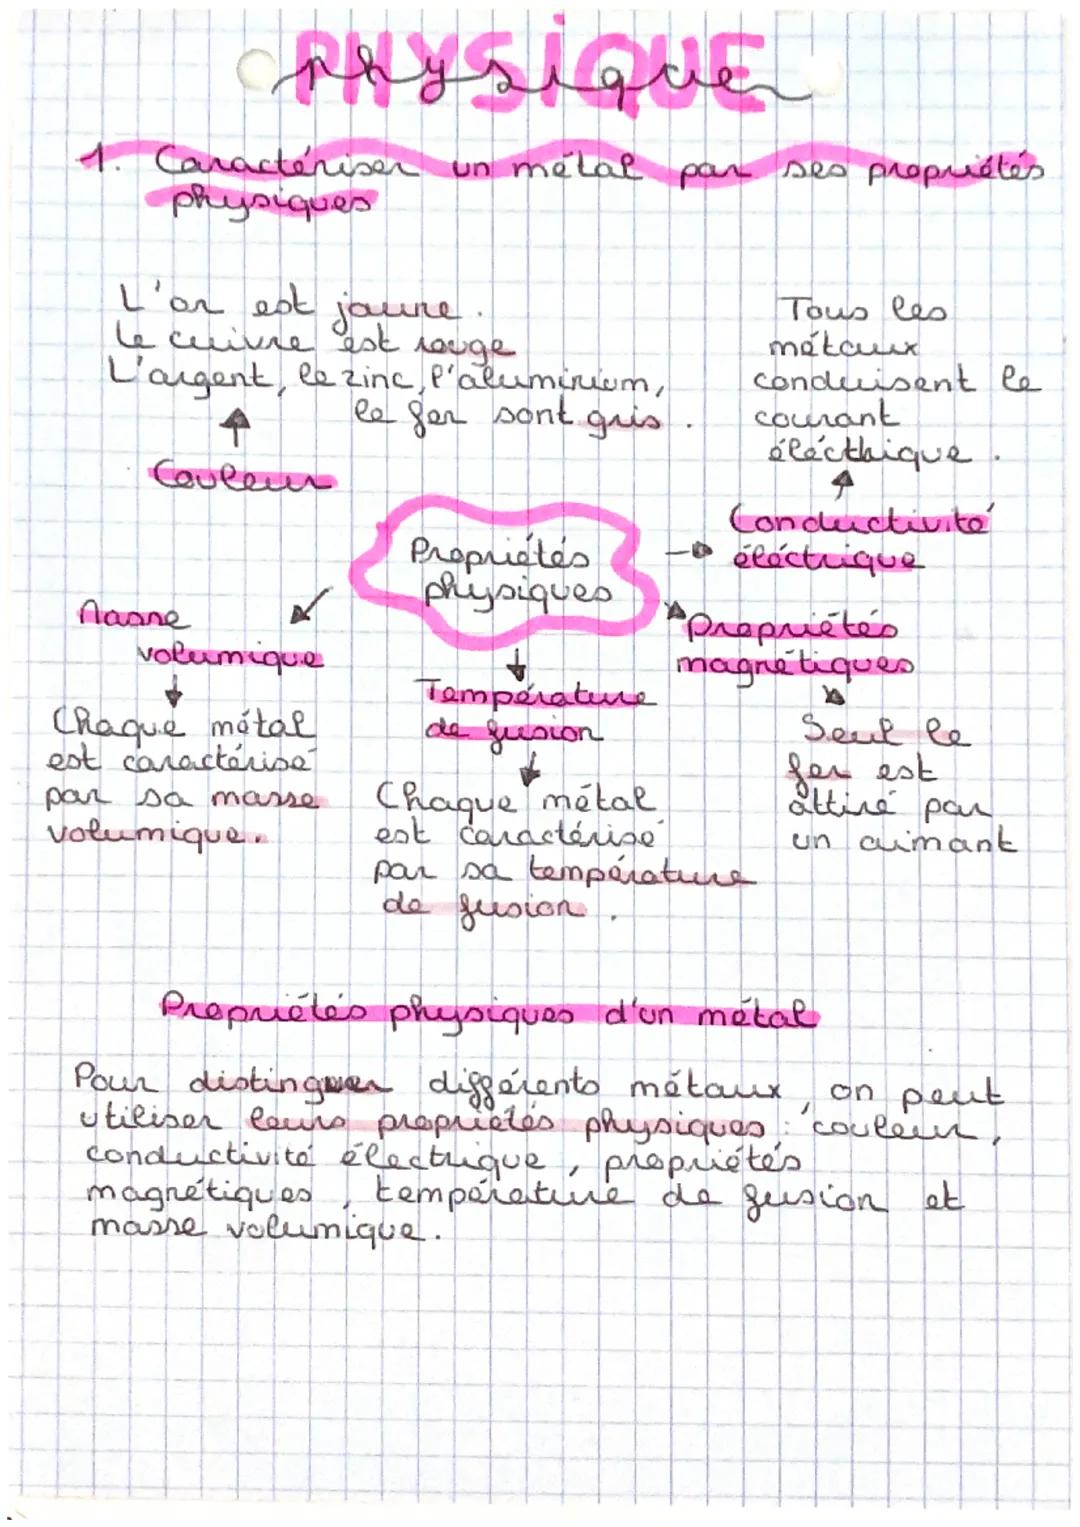 PHYSIQUE
physique
1. Caractériser un métal par ses propriétés
physiques
L'or est jaune.
Le cuivre est rouge
L'argent, le zinc, l'aluminium,
le fer sont gris.
Couleur
Tous les
métaux
conduisent le
courant
éléctrique.
Conductivité
éléctrique
Propriétés
physiques
Masse
volumique
Chaque métal
est caractérisé
par sa masse
volumique.
Température
de fusion
Chaque métal
est caractérisé
par sa température
de fusion.
Propriétés
magnétiques
Seul le
fer est
attiré par
un aimant
Propriétés physiques d'un métal
Pour distinguer différents métaux, on peut
utiliser leurs propriétés physiques : couleur,
conductivité électrique, propriétés
magnétiques, température de fusion et
masse volumique.